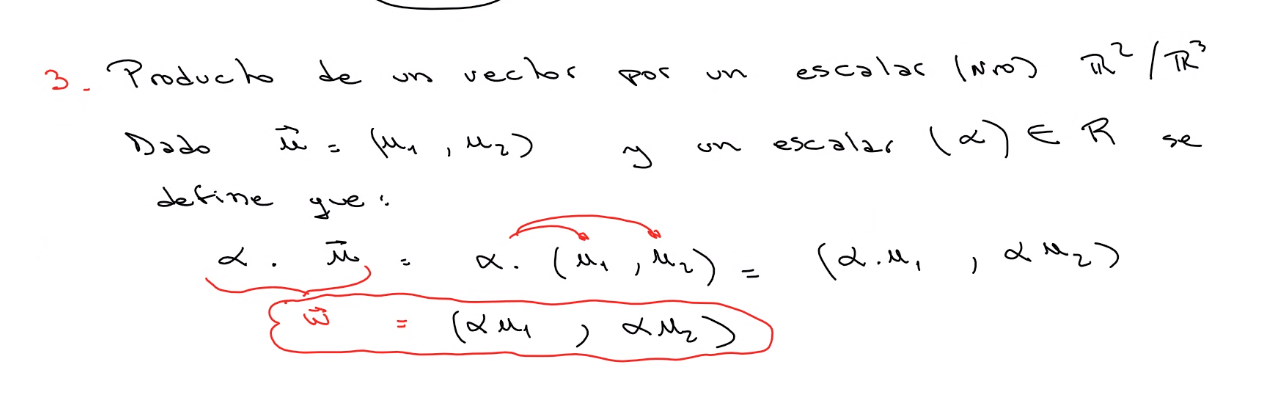 3. Producto de un vector por un escalar (Nro) ℝ² / ℝ³
Dado u⃗ = (u₁ , u₂) y un escalar (α) ∈ ℝ se
define que:
α . u⃗ = α . (u₁ , u₂) = (α . u₁ , α u₂)
w⃗ = (α u₁ , α u₂)